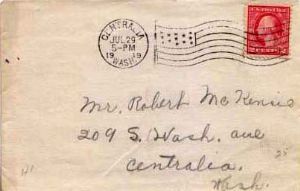 CENTRALIA
JUL 29
5-PM
1919
WASH.
Mr. Robert McKenis
209 S. Wash. ave
Centralia.
Wash.